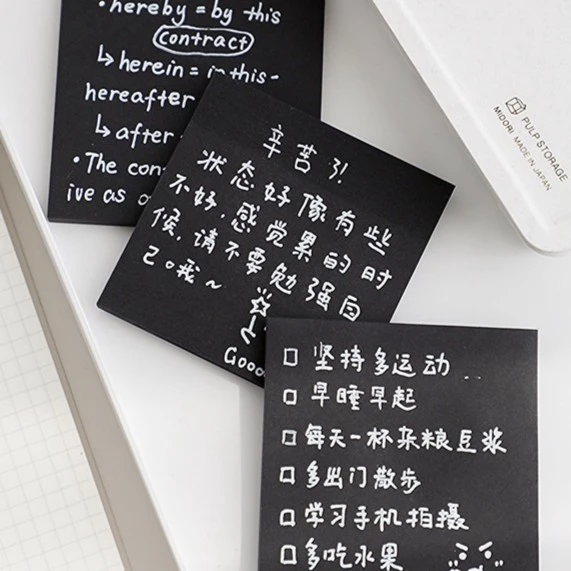 • hereby = by this
contract
↳ herein = in this -
hereafter
↳ after
• The con
ive as a
辛苦了!
状态好像有些
不好,感觉累的时
候,请不要勉强自
己。哦~
Good
□ 坚持多运动
□ 早睡早起
□ 每天一杯杂粮豆浆
□ 多出门散步
□ 学习手机拍摄
□ 多吃水果
PULP STORAGE
MIDORI MADE IN JAPAN